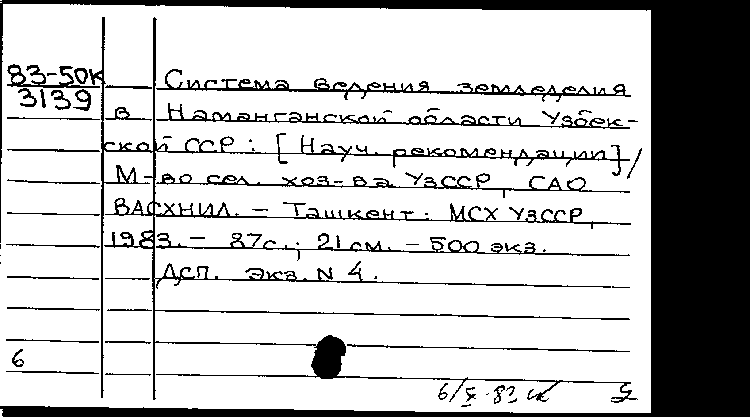 83-50к
3139
Система ведения земледелия
в Наманганской области Узбек-
ской ССР : [Науч. рекомендации] /
М-во сел. хоз-ва УзССР, САО
ВАСХНИЛ. – Ташкент : МСХ УзССР,
1983. – 87с. ; 21 см. – 500 экз.
Дсп. экз. N 4.
6